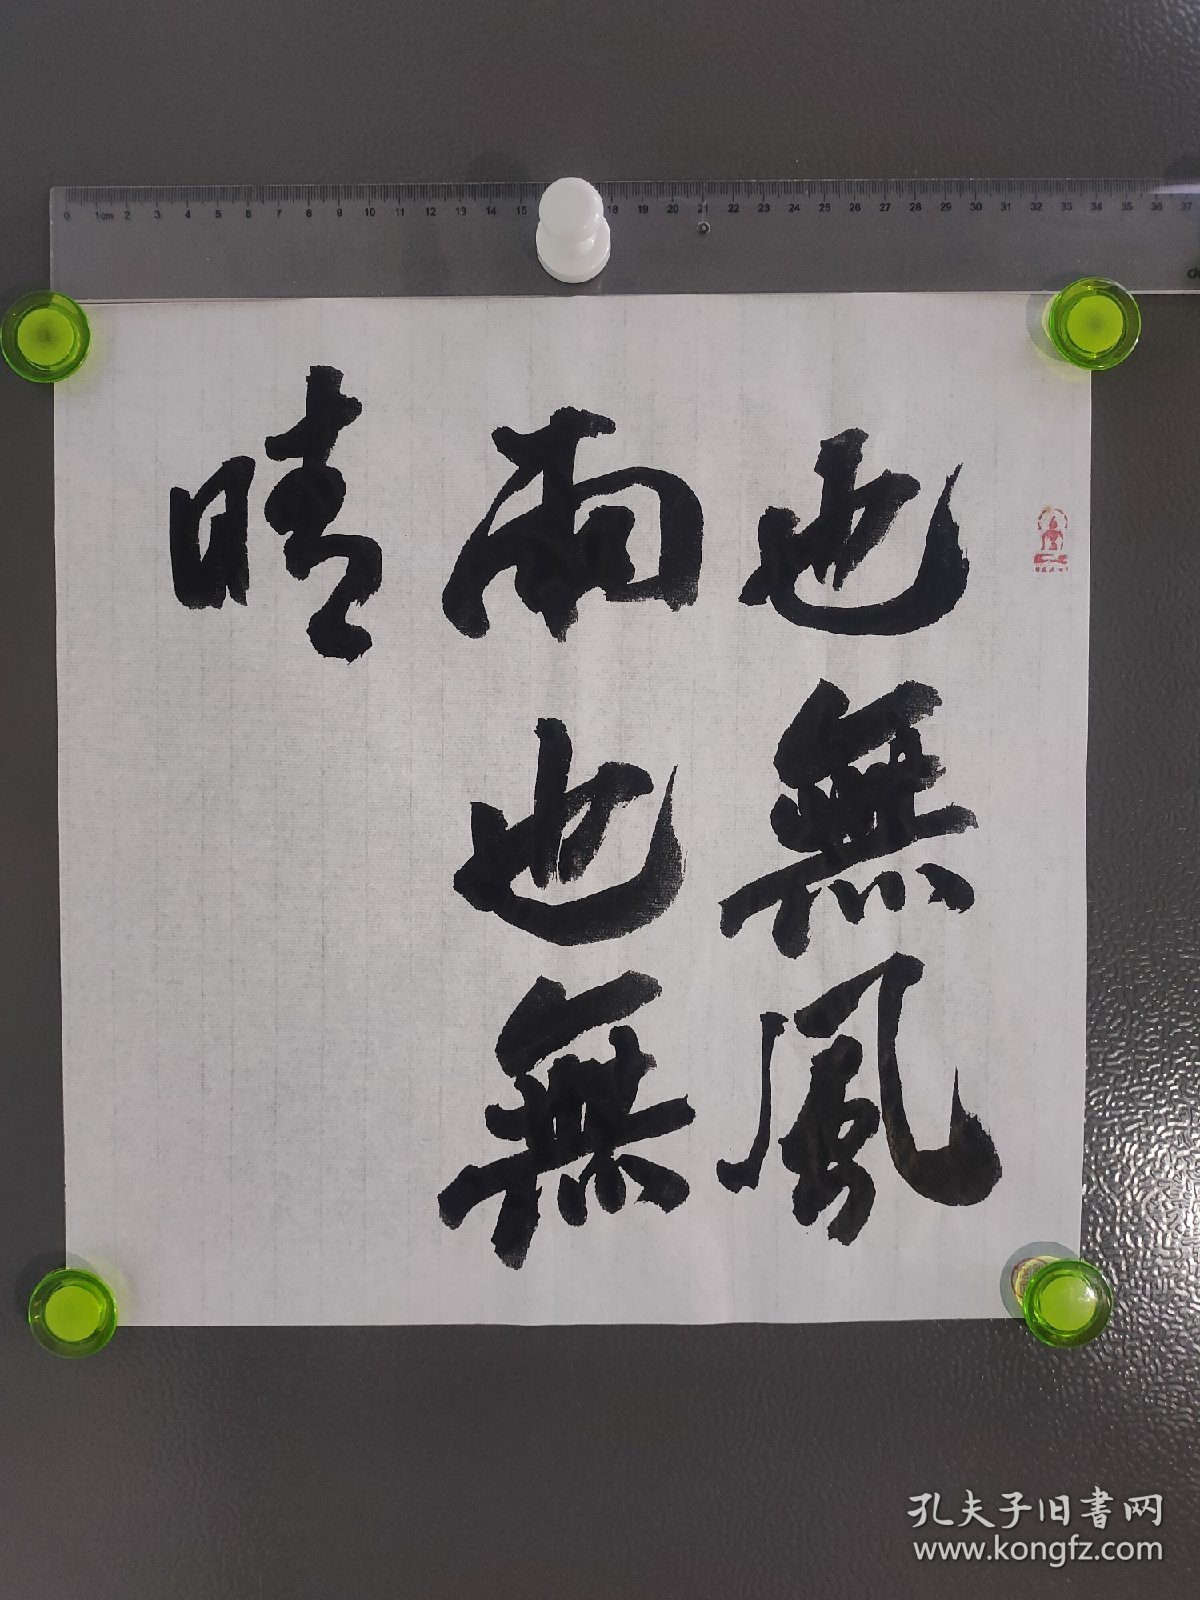 0 1cm 2 3 4 5 6 7 8 9 10 11 12 13 14 15 18 19 20 21 22 23 24 25 26 27 28 29 30 31 32 33 34 35 36 37
也無風
雨也無
晴
孔夫子旧書网
www.kongfz.com